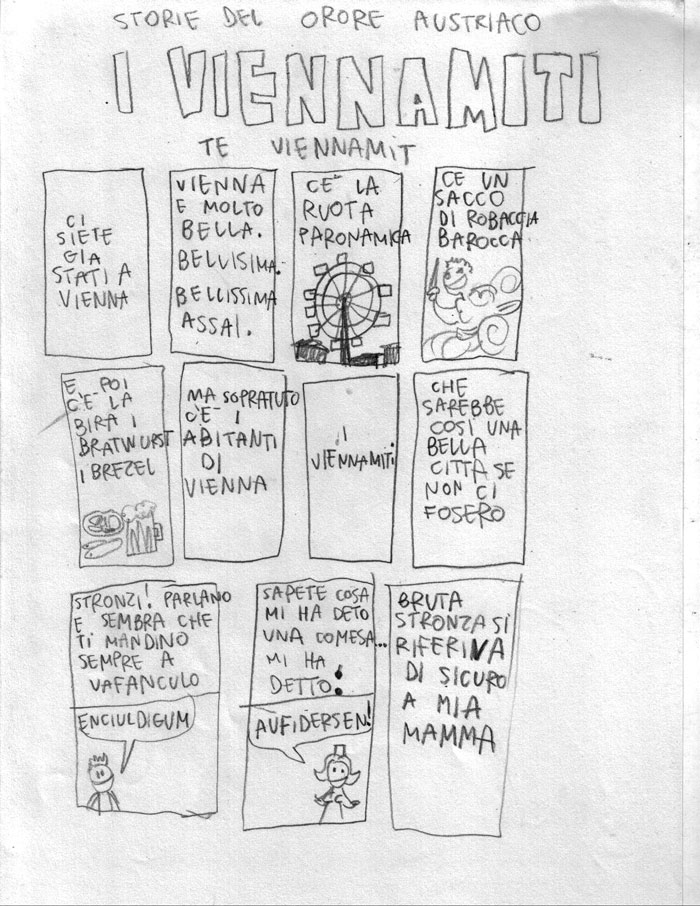 STORIE DEL ORORE AUSTRIACO
I VIENNAMITI
TE VIENNAMIT
CI
SIETE
GIA
STATI A
VIENNA
VIENNA
E MOLTO
BELLA.
BELLISIMA.
BELLISSIMA
ASSAI.
C'È LA
RUOTA
PARONAMICA
CE UN
SACCO
DI ROBACCIA
BAROCCA
E POI
C'È LA
BIRA I
BRATWURST
I BREZEL
MA SOPRATUTO
C'È I
ABITANTI
DI
VIENNA
I
VIENNAMITI
CHE
SAREBBE
COSI UNA
BELLA
CITTA SE
NON CI
FOSERO
STRONZI! PARLANO
E SEMBRA CHE
TI MANDINO
SEMPRE A
VAFANCULO
ENCIULDIGUM
SAPETE COSA
MI HA DETO
UNA COMESA...
MI HA
DETTO!
AUFIDERSEN!
BRUTA
STRONZA SI
RIFERIVA
DI SICURO
A MIA
MAMMA